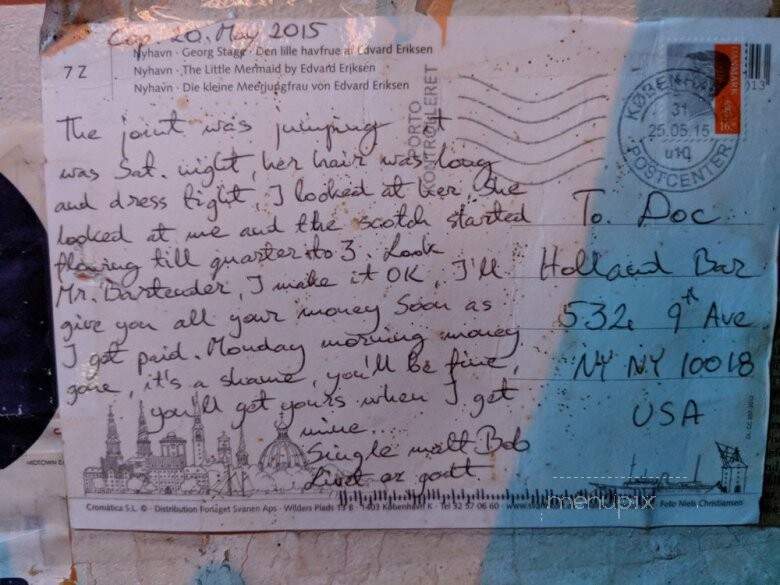 Cop 20. May 2015
Nyhavn · Georg Stage · Den lille havfrue af Edvard Eriksen
7 Z
Nyhavn · The Little Mermaid by Edvard Eriksen
Nyhavn · Die kleine Meerjungfrau von Edvard Eriksen
PORTO
KONTROLLERET
DANMARK
KØBENHAVN
31
25.05.15
POSTCENTER
The joint was jumping it
was Sat. night, her hair was long
and dress tight, I looked at her she
looked at me and the scotch started
flowing till quarter to 3. Look
Mr. Bartender, I make it OK, I'll
give you all your money soon as
I get paid. Monday morning money
gone, it's a shame, you'll be fine,
you'll get yours when I get
mine...
Single malt Bob
To. Doc
Holland Bar
532. 9th Ave
NY NY 10018
USA
Cromática S.L. © · Distribution Forlaget Svanen Aps · Wilders Plads 15 B · 1403 København K · Tel 32 57 06 60 · www.
Foto Niels Christiansen
menupix